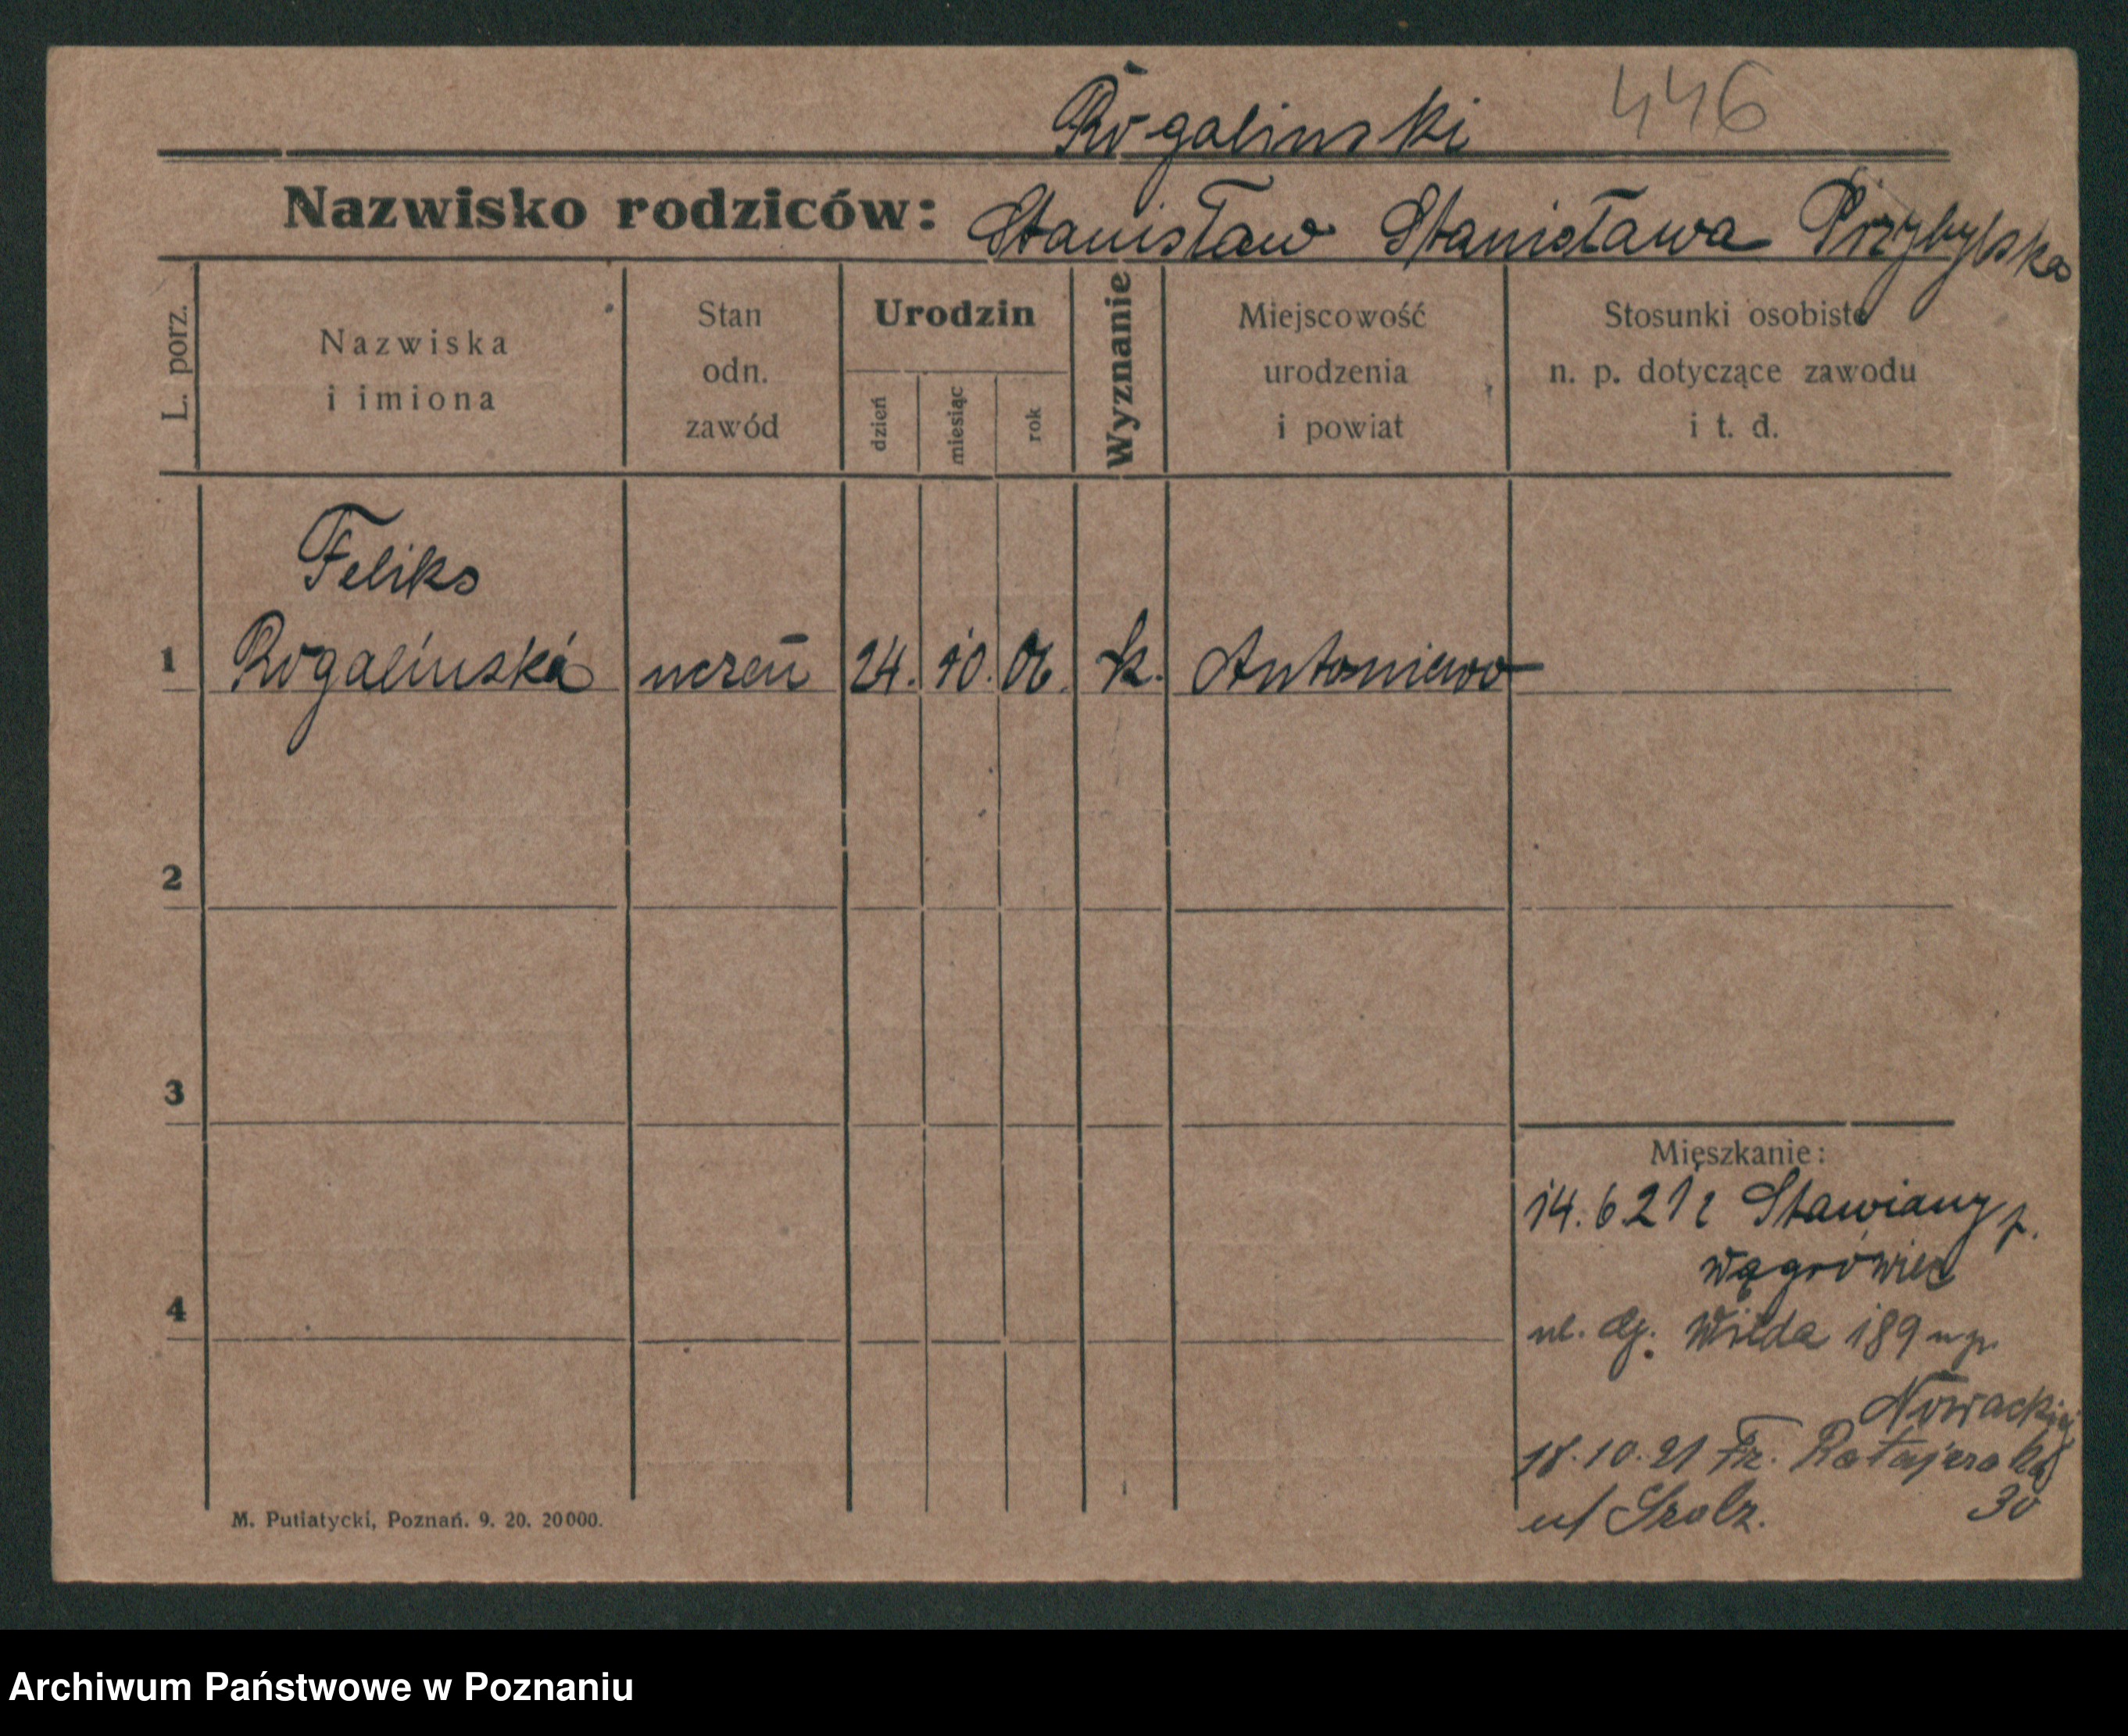 Rogalinski 446
Nazwisko rodziców: Stanisław Stanisława Przybylska
L. porz.
Nazwiska
i imiona
Stan
odn.
zawód
Urodzin
dzień
miesiąc
rok
Wyznanie
Miejscowość
urodzenia
i powiat
Stosunki osobiste
n. p. dotyczące zawodu
i t. d.
Feliks
1 Rogalinski uczeń 24. 10. 06. k. Antoniewo
2
3
Mieszkanie:
14.6.21 z Stawiany p.
Wągrówiec
4
ul. Wilda 189
Nowackiej
18.10.21 Fr. Ratajczaka
30
M. Putiatycki, Poznań. 9. 20. 20000.
Archiwum Państwowe w Poznaniu